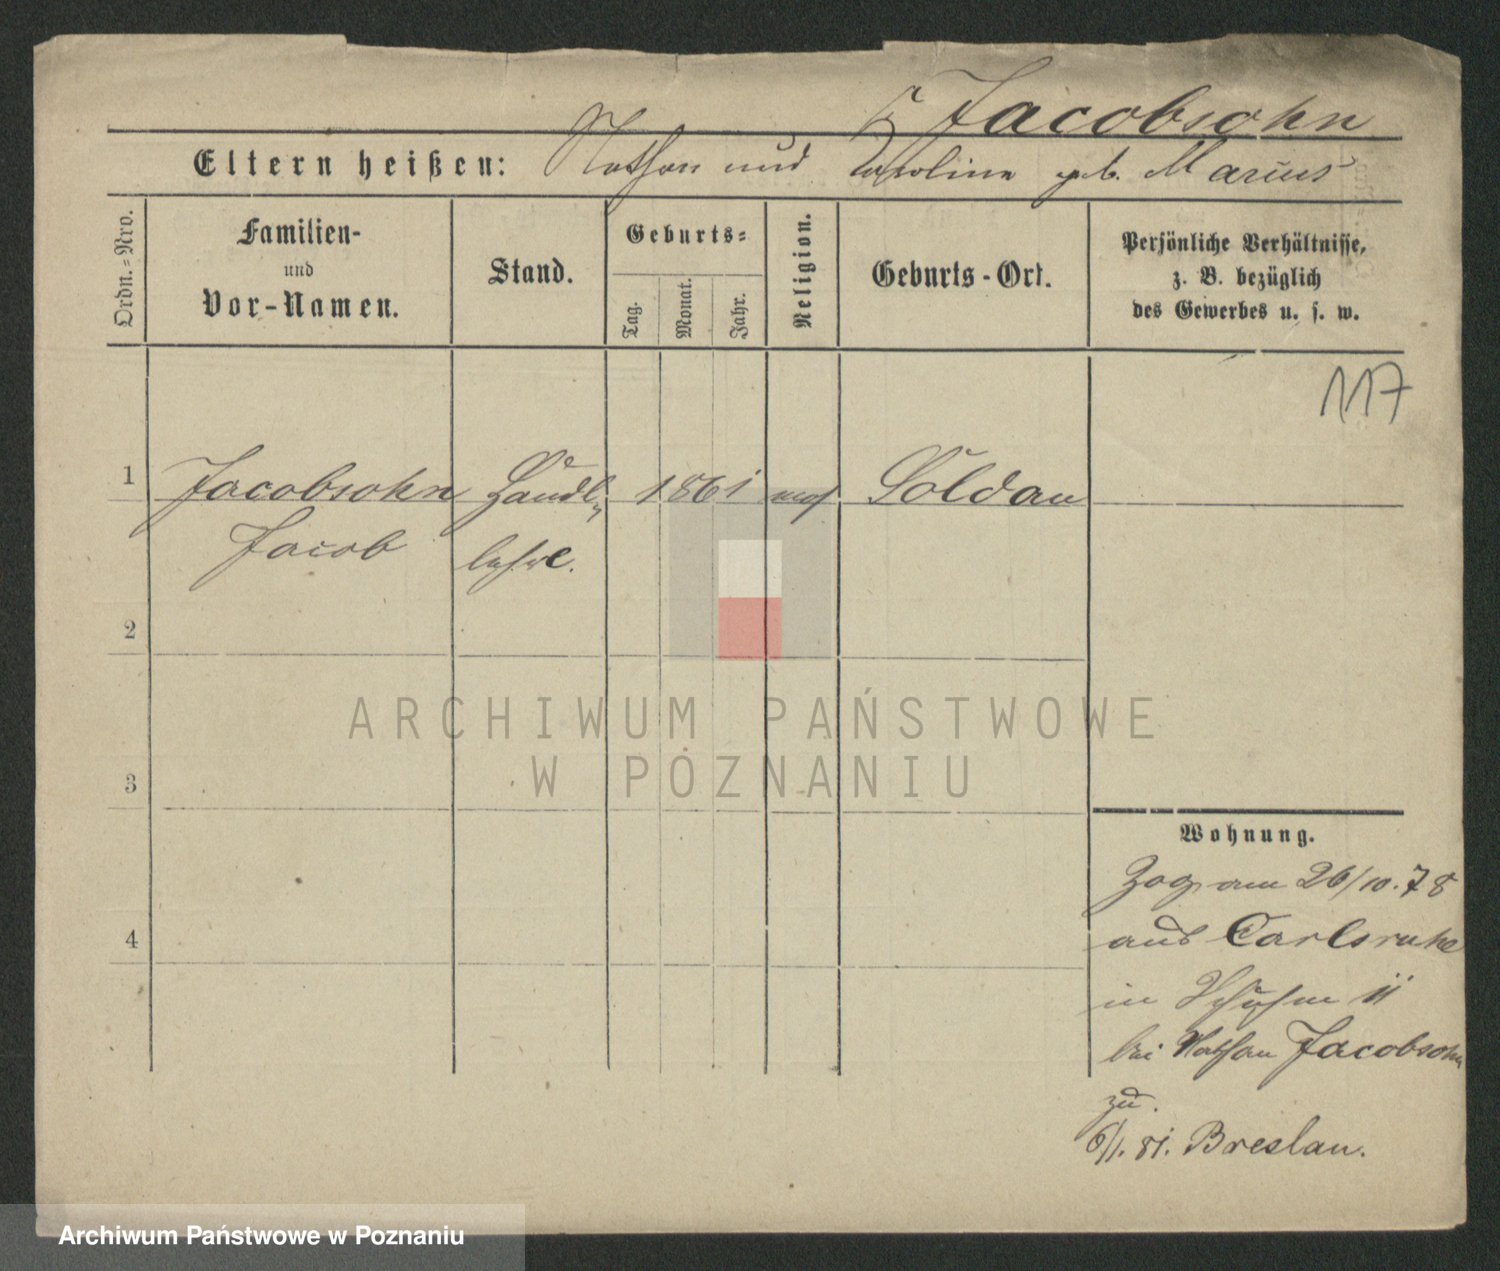 Jacobsohn
Eltern heißen: Nathan und Caroline geb. Marcus
Ordn.=Nro.
Familien-
und
Vor-Namen.
Stand.
Geburts=
Tag.
Monat.
Jahr.
Religion.
Geburts-Ort.
Persönliche Verhältnisse,
z. B. bezüglich
des Gewerbes u. s. w.
117
1 Jacobsohn Handl. 1861 mos Soldau
Jacob lehrl.
2
3
4
Wohnung.
Zog am 26/10. 78
aus Carlsruhe
in II
bei Nathan Jacobsohn
zu.
6/1. 81. Breslau.
ARCHIWUM PAŃSTWOWE
W POZNANIU
Archiwum Państwowe w Poznaniu